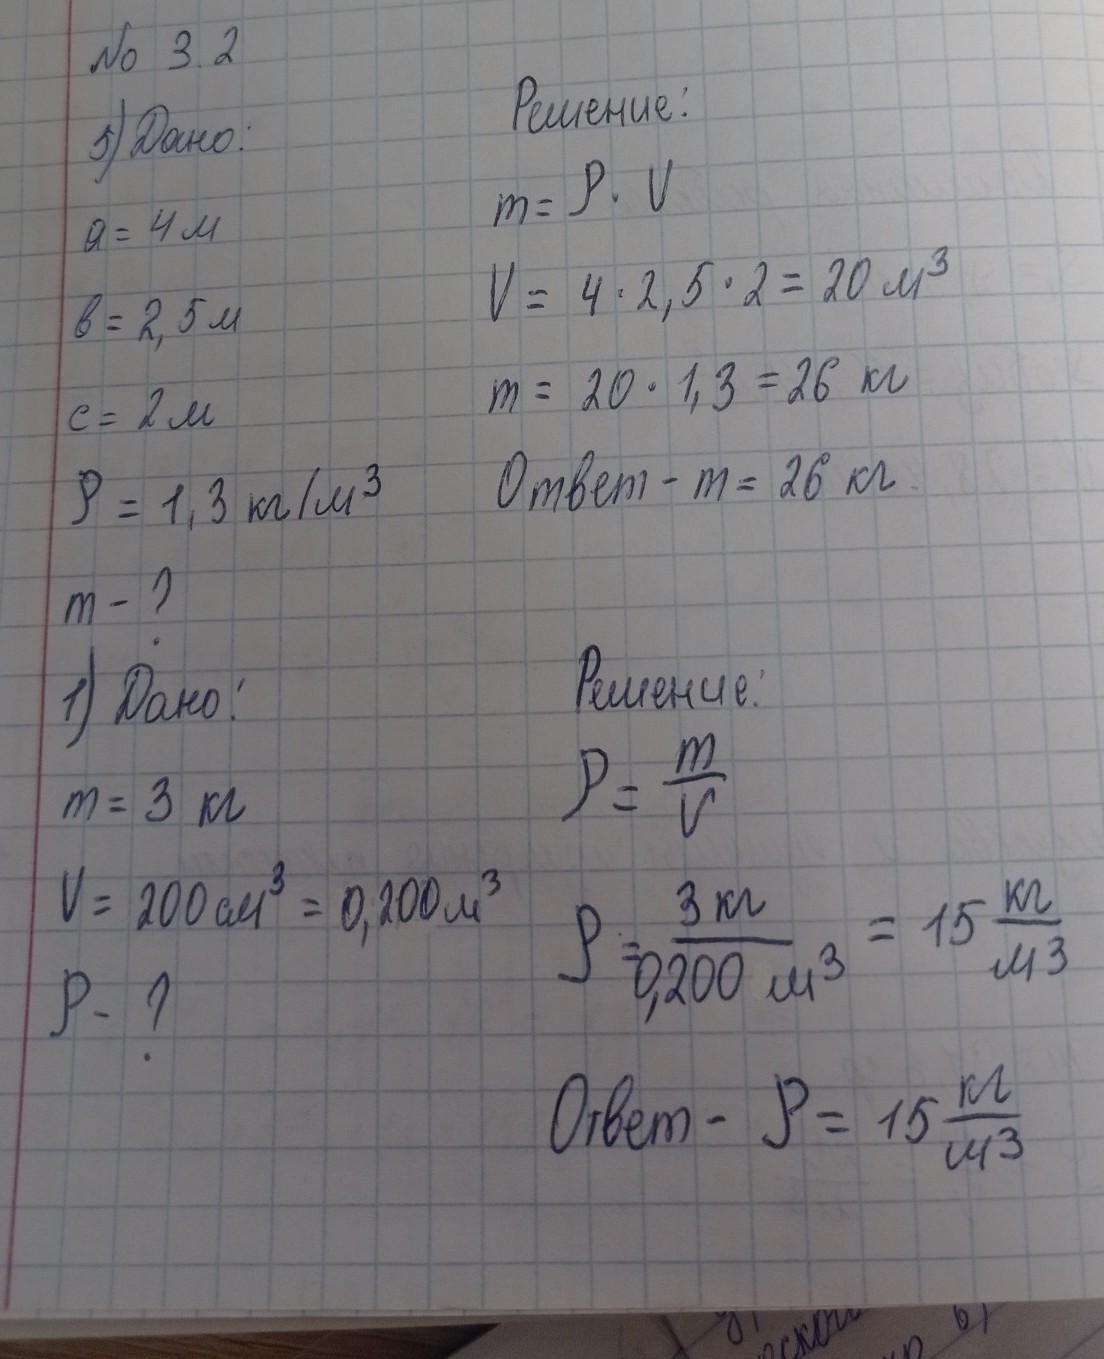 No 3.2
5) Дано:
a = 4 м
в = 2,5 м
с = 2 м
ρ = 1,3 кг/м³
m - ?
Решение:
m = ρ · V
V = 4 · 2,5 · 2 = 20 м³
m = 20 · 1,3 = 26 кг
Ответ - m = 26 кг.
1) Дано:
m = 3 кг
V = 200 см³ = 0,200 м³
ρ - ?
Решение:
ρ = m/V
ρ = 3 кг/0,200 м³ = 15 кг/м3
Ответ - ρ = 15 кг/м3